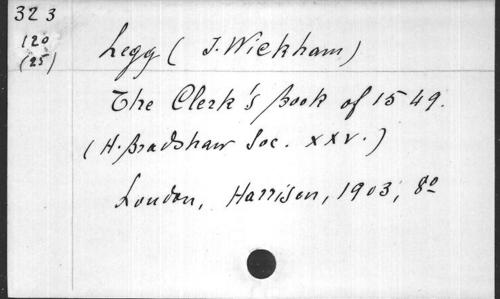 323
120
(25)
Legg (J. Wickham)
The Clerk's Book of 1549.
(H. Bradshaw Soc. XXV.)
London, Harrison, 1903, 8º